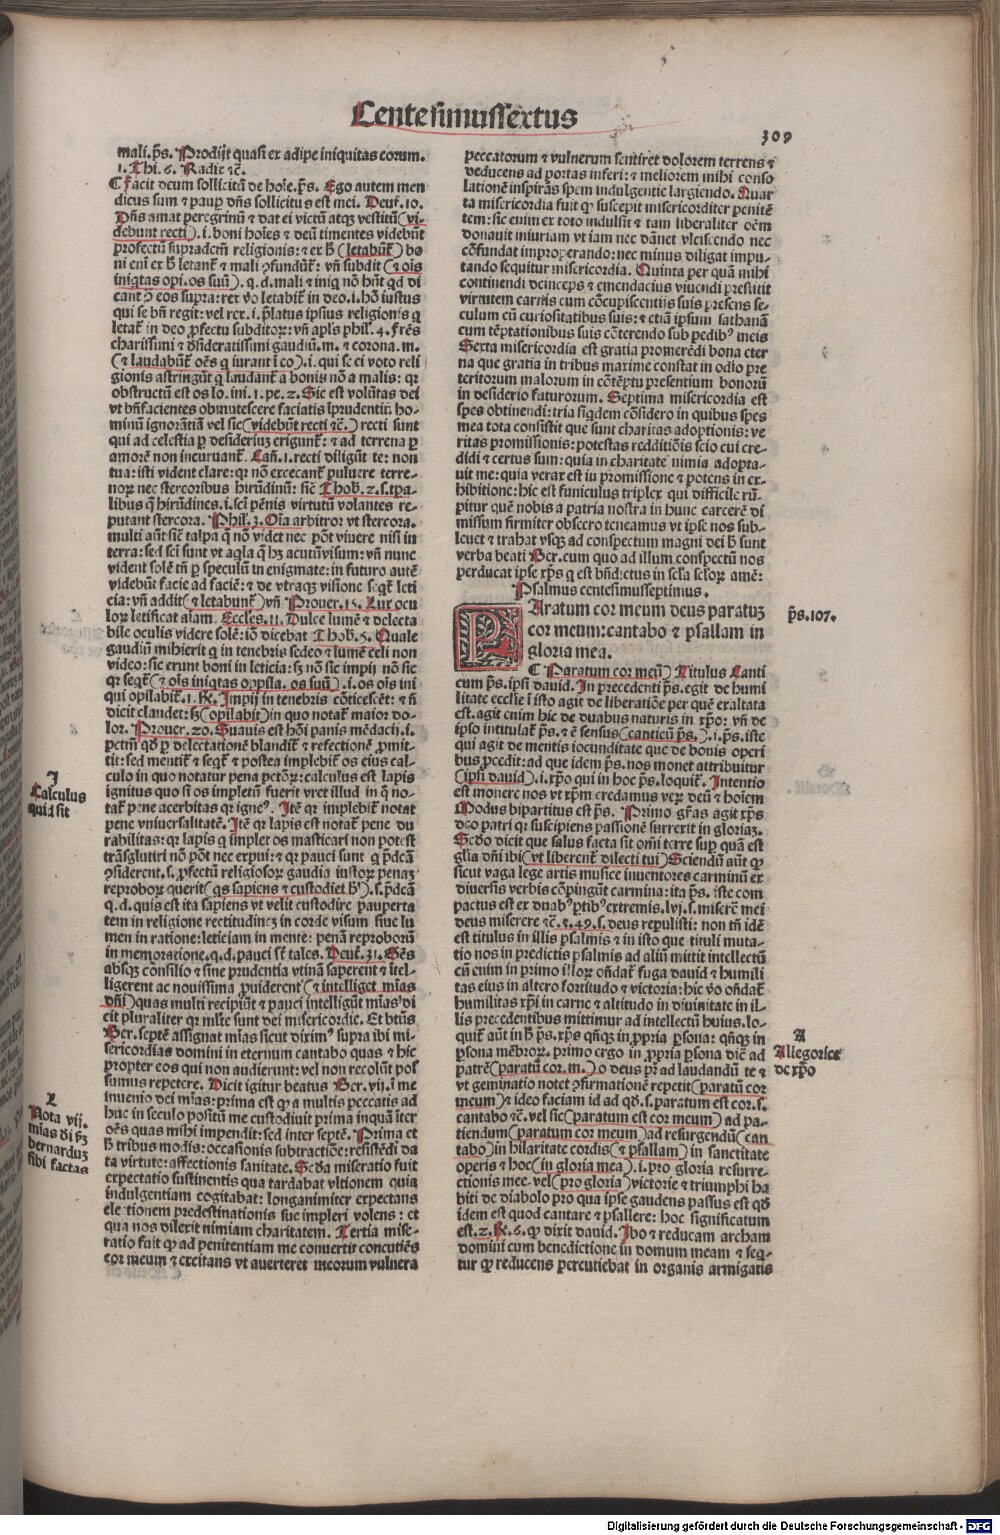 Centesimussextus
309
mali.p̄s. Prodijt quasi ex adipe iniquitas eorum.
1. Thi. 6. Radix ⁊c̄.
¶ Facit deum sollicitū de hoīe. p̄s. Ego autem men
dicus sum ⁊ paup̄ dn̄s sollicitus est mei. Deut̄. 10.
Dn̄s amat peregrinū ⁊ dat ei victū atqꝫ vestitū (vi-
debunt recti). i. boni hoīes ⁊ deū timentes videbūt
gionis astringūt q̄ laudant̄ a bonis nō a malis: qꝛ
obstructū est os lo. ini. 1. pe. 2. Sic est volūtas dei
vt bn̄facientes obmutescere faciatis īprudentiū ho-
minū ignorātiā vel sic (videbūt recti ⁊c̄.) recti sunt
amorē non incuruant̄. Can̄. 1. recti diligūt te: non
tua: isti vident clare: qꝛ nō excecant̄ puluere terre-
libus q̄ hirūdines. i. sc̄i pēnis virtutū volantes re-
putant stercora. Phil̄. 3. Oīa arbitror vt stercora.
multi aūt sic̄ talpa q̄ nō videt nec pōt viuere nisi in
terra: sed sc̄i sunt vt aq̄la q̄ hꝫ acutū visum: vn̄ nunc
vident solē tn̄ p̄ speculū in enigmate: in futuro autē
videbūt facie ad faciē: ⁊ de vtraqꝫ visione seqt̄ leti
cia: vn̄ addit (⁊ letabunt̄) vn̄ Prouer. 15. Lux ocu
loꝝ letificat aīam. Eccles. 11. Dulce lumē ⁊ delecta
bile oculis videre solē: iō dicebat Thob. 5. Quale
gaudiū mihi erit q̄ in tenebris sedeo ⁊ lumē celi non
video: sic erunt boni in leticia: sꝫ nō sic impij nō sic
dicit claudet: sꝫ (opilabit) in quo notat̄ maior do-
lor. Prouer. 20. Suauis est hōi panis mēdacij. i.
culo in quo notatur pena pctōꝝ: calculus est lapis
ignitus quo si os impletū fuerit vret illud in q̄ no-
tat̄ pene acerbitas qꝛ igne. Itē qꝛ implebit̄ notat
pene vniuersalitatē. Itē qꝛ lapis est notat̄ pene du
rabilitas: qꝛ lapis q̄ implet os masticari non potest
trāsglutiri nō pōt nec expui: ⁊ qꝛ pauci sunt q̄ p̄dcā
reproboꝝ querit (qs sapiens ⁊ custodiet h̄). s. p̄dcā
q. d. quis est ita sapiens vt velit custodire pauperta
tem in religione rectitudinē in corde visum siue lu
men in ratione: leticiam in mente: penā reproborū
in memoratione. q. d. pauci sūt tales. Deut̄. 31. Gēs
absqꝫ consilio ⁊ sine prudentia vtinā saperent ⁊ ītel-
ligerent ac nouissima prouiderent (⁊ intelliget mīas
dn̄i) quas multi recipiūt ⁊ pauci intelligūt mīas di
cit pluraliter qꝛ multe sunt dei misericordie. Et btūs
Ber. septē assignat mīas sicut dixim⁹ supra ibi mi-
sericordias domini in eternum cantabo quas ⁊ hic
propter eos qui non audierunt: vel non recolūt pos
sumus repetere. Dicit igitur beatus Ber. vij. ī me
inuenio dei mīas: prima est qꝛ a multis peccatis ad
huc in seculo positū me custodiuit prima inquā īter
oēs quas mihi impendit: sed inter septē. Prima et
h̄ tribus modis: occasionis subtractiōe: resistēdi da
ta virtute: affectionis sanitate. Scd̄a miseratio fuit
expectatio sustinentis qua tardabat vltionem quia
indulgentiam cogitabat: longanimiter expectans
electionem predestinationis sue impleri volens: et
qua nos dilexit nimiam charitatem. Tertia mise-
ratio fuit qꝙ ad penitentiam me conuertit concutiēs
cor meum ⁊ excitans vt auerteret meorum vulnera
J
Calculus
quid sit
L
Nota vij.
mīas di ẜm
bernarduꝫ
sibi factas
peccatorum ⁊ vulnerum sentiret dolorem terrens ⁊
deducens ad portas inferi: ⁊ meliorem mihi conso
lationē inspirās spem indulgentie largiendo. Quar
ta misericordia fuit qꝙ suscepit misericorditer penitē
tem: sic enim ex toto indulsit ⁊ tam liberaliter oēm
donauit iniuriam vt iam nec dānet vlciscendo nec
cōfundat improperando: nec minus diligat impu-
tando sequitur misericordia. Quinta per quā mihi
continendi deinceps ⁊ emendacius viuendi prestitit
virtutem carnis cum cōcupiscentijs suis presens se-
culum cū curiositatibus suis: ⁊ etiā ipsum sathanā
cum tēptationibus suis cōterendo sub pedib⁹ meis
Sexta misericordia est gratia promerēdi bona eter
na que gratia in tribus maxime constat in odio pre
teritorum malorum in cōtēptu presentium bonorū
in desiderio futurorum. Septima misericordia est
spes obtinendi: tria siqdem cōsidero in quibus spes
mea tota consistit que sunt charitas adoptionis: ve
ritas promissionis: potestas redditiōis scio cui cre-
didi ⁊ certus sum: quia in charitate nimia adopta-
uit me: quia verax est in promissione ⁊ potens in ex-
hibitione: hic est funiculus triplex qui difficile rū-
pitur quē nobis a patria nostra in hunc carcerē di
missum firmiter obsecro teneamus vt ipse nos sub-
leuet ⁊ trahat vsqꝫ ad conspectum magni dei h̄ sunt
verba beati Ber. cum quo ad illum conspectū nos
perducat ipse xp̄s q̄ est bn̄dictus in scl̄a scl̄oꝝ amē:
Psalmus centesimusseptimus.
PAratum cor meum deus paratuꝫ
cor meum: cantabo ⁊ psallam in
gloria mea.
¶ (Paratum cor meū) Titulus Canti
cum p̄s. ipsi dauid. In precedenti p̄s. egit de humi
litate ecclīe ī isto agit de liberatiōe per quē exaltata
est. agit enim hic de duabus naturis in xp̄o: vn̄ de
ipso intitulat̄ p̄s. ⁊ ē sensus (canticū p̄s.). i. p̄s. iste
qui agit de mentis iocunditate que de bonis operi
bus p̄cedit: ad que idem p̄s. nos monet attribuitur
(ipsi dauid). i. xp̄o qui in hoc p̄s. loquit̄. Intentio
est monere nos vt xp̄m credamus veꝝ deū ⁊ hoīem
Modus bipartitus est p̄s. Primo gr̄as agit xp̄s
deo patri qꝛ suscipiens passionē surrexit in gloriaꝫ.
Scd̄o dicit que salus facta sit om̄i terre sup̄ quā est
glīa dn̄i ibi (vt liberent̄ dilecti tui) Sciendū aūt qꝙ
sicut vaga lege artis musice inuentores carminū ex
diuersis verbis cōpingūt carmina: ita p̄s. iste com
pactus est ex duab⁹ p̄tib⁹ extremis. lvj. s. miserē mei
deus miserere ⁊c̄. ⁊. 49. s. deus repulisti: non tn̄ idē
est titulus in illis psalmis ⁊ in isto que tituli muta-
tio nos in predictis psalmis ad aliū mittit intellectū
cū enim in primo illoꝝ on̄dat̄ fuga dauid ⁊ humili
tas eius in altero fortitudo ⁊ victoria: hic v̄o on̄dat̄
humilitas xp̄i in carne ⁊ altitudo in diuinitate in il-
lis precedentibus mittimur ad intellectū huius. lo-
quit̄ aūt in h̄ p̄s. xp̄s qn̄qꝫ in ꝓpria ꝑsona: qn̄qꝫ in
ꝑsona mēbroꝝ. primo ergo in ꝓpria ꝑsona dic̄ ad
patrē (paratū cor. m.) o deus pr̄ ad laudandū te ⁊
vt geminatio notet ꝯfirmationē repetit (paratū cor
meum) ⁊ ideo faciam id ad qd̄. s. paratum est cor. s.
cantabo ⁊c̄. vel sic (paratum est cor meum) ad pa-
tiendum (paratum cor meum) ad resurgendū (can
tabo) in hilaritate cordis (⁊ psallam) in sanctitate
operis ⁊ hoc (in gloria mea). i. pro gloria resurre-
ctionis mee. vel (pro gloria) victorie ⁊ triumphi ha
biti de diabolo pro qua ipse gaudens passus est qd̄
idem est quod cantare ⁊ psallere: hoc significatum
est. 2. R. 6. qꝙ dixit dauid. Ibo ⁊ reducam archam
domini cum benedictione in domum meam ⁊ seq-
tur qꝙ reducens percutiebat in organis armigatis
p̄s. 107.
A
Allegorice
de xp̄o
Digitalisierung gefördert durch die Deutsche Forschungsgemeinschaft - DFG